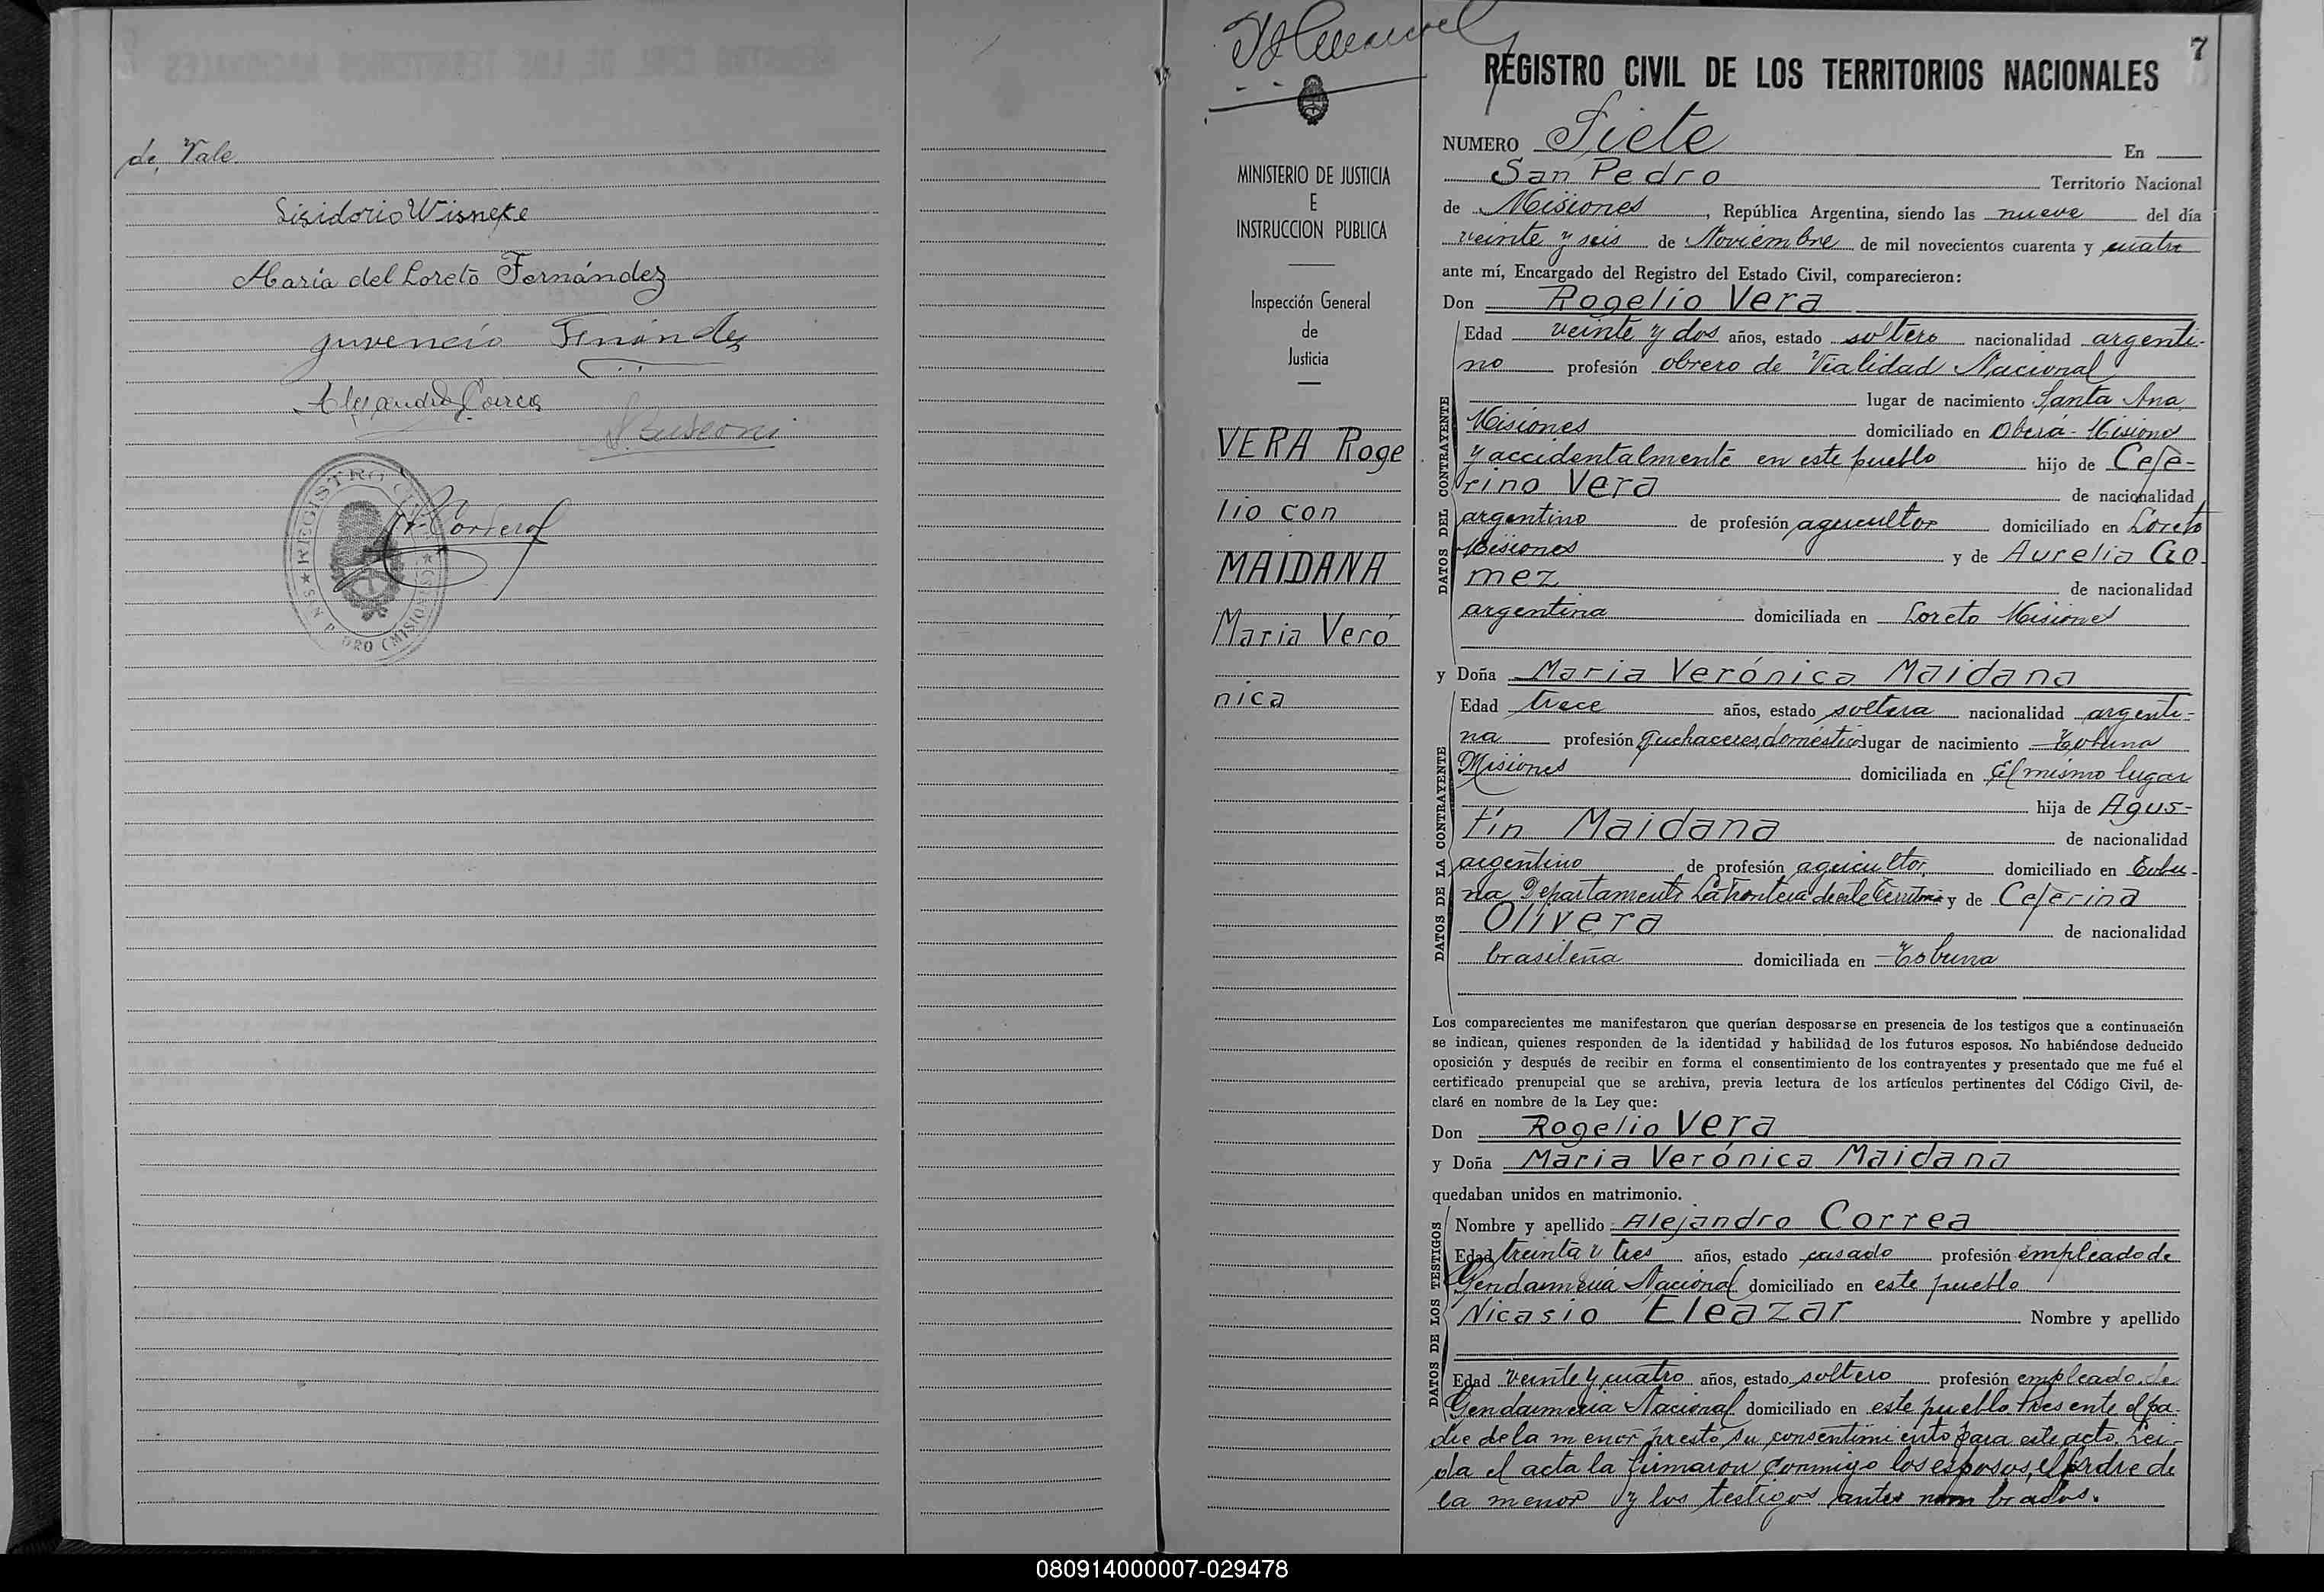 de, Vale
Lisidorio Wisneke
María del Loreto Fernández
Juvencio
Alejandro Correa
REGISTRO
(MISIONES)
7
REGISTRO CIVIL DE LOS TERRITORIOS NACIONALES
MINISTERIO DE JUSTICIA
E
INSTRUCCION PUBLICA
Inspección General
de
Justicia
VERA Roge
lio con
MAIDANA
Maria Veró
nica
NUMERO Siete En
San Pedro Territorio Nacional
de Misiones, República Argentina, siendo las nueve del día
veinte y seis de Noviembre de mil novecientos cuarenta y cuatro
ante mí, Encargado del Registro del Estado Civil, comparecieron:
Don Rogelio Vera
DATOS DEL CONTRAYENTE
Edad veinte y dos años, estado soltero nacionalidad argenti-
no profesión obrero de Vialidad Nacional
lugar de nacimiento Santa Ana
Misiones domiciliado en Oberá - Misiones
y accidentalmente en este pueblo hijo de Cefe-
rino Vera de nacionalidad
argentino de profesión agricultor domiciliado en Loreto
Misiones y de Aurelia Go
mez de nacionalidad
argentina domiciliada en Loreto Misiones
y Doña Maria Verónica Maidana
DATOS DE LA CONTRAYENTE
Edad trece años, estado soltera nacionalidad argenti-
na profesión Quehaceres domésticos lugar de nacimiento Tobuna
Misiones domiciliada en El mismo lugar
hija de Agus-
tín Maidana de nacionalidad
argentino de profesión agricultor, domiciliado en Tobu-
na Departamento La Frontera de este Territorio y de Ceferina
Olivera de nacionalidad
brasileña domiciliada en Tobuna
Los comparecientes me manifestaron que querían desposarse en presencia de los testigos que a continuación
se indican, quienes responden de la identidad y habilidad de los futuros esposos. No habiéndose deducido
oposición y después de recibir en forma el consentimiento de los contrayentes y presentado que me fué el
certificado prenupcial que se archiva, previa lectura de los artículos pertinentes del Código Civil, de-
claré en nombre de la Ley que:
Don Rogelio Vera
y Doña Maria Verónica Maidana
quedaban unidos en matrimonio.
DATOS DE LOS TESTIGOS
Nombre y apellido Alejandro Correa
Edad treinta y tres años, estado casado profesión empleado de
Gendarmería Nacional domiciliado en este pueblo
Nicasio Eleazar Nombre y apellido
Edad veinte y cuatro años, estado soltero profesión empleado de
Gendarmería Nacional domiciliado en este pueblo. Presente el pa-
dre de la menor prestó su consentimiento para este acto. Leí-
da el acta la firmaron conmigo los esposos, el padre de
la menor y los testigos antes nombrados.
080914000007-029478